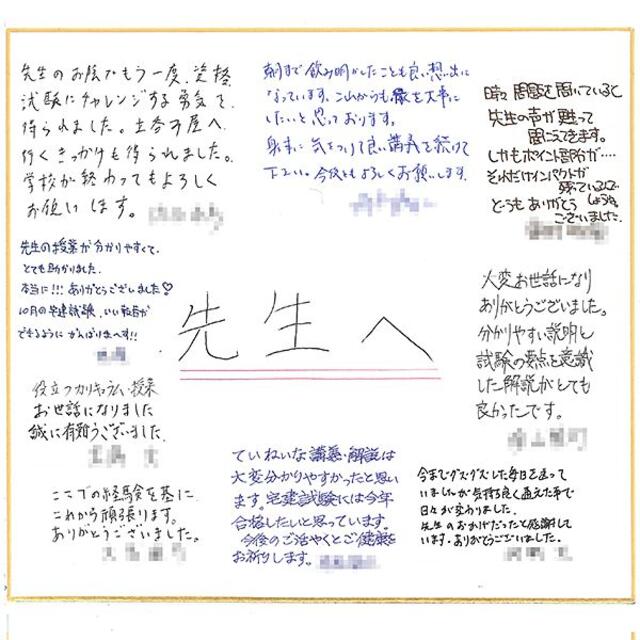 先生のお陰でもう一度、資格
試験にチャレンジする勇気を
得られました。土谷部屋へ
行くきっかけも得られました。
学校が終わってもよろしく
お願いします。
朝まで飲み明かしたことも良い想い出に
なっています。これからも縁を大事に
したいと思っております。
身体に気をつけて良い講義を続けて
下さい。今後ともよろしくお願いします。
時々問題を聞いていると
先生の声が甦って
聞こえてきます。
しかもポイント部分が…
それだけインパクトが
残っているんで
しょうね。
どうもありがとう
ございました。
先生の授業が分かりやすくて、
とても助かりました。
本当に!!!ありがとうございました♡
10月の宅建試験、いい報告が
できるようにがんばりまーす!!
先生へ
大変お世話になり
ありがとうございました。
分かりやすい説明と
試験の要点を意識
した解説がとても
良かったです。
役立つカリキュラム・授業
お世話になりました
誠に有難うございました。
ていねいな講義・解説は
大変分かりやすかったと思い
ます。宅建試験には今年
合格したいと思っています。
今後のご活やくとご健康を
お祈りします。
今までグズグズした毎日を送って
いましたが気持ち良く通えた事で
日々が変わりました。
先生のおかげだったと感謝して
います。ありがとうございました。
ここでの経験を基に
これから頑張ります。
ありがとうございました。